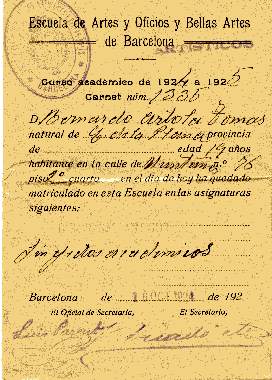 Escuela de Artes y Oficios y Bellas Artes
de Barcelona
ARTÍSTICOS
Curso académico de 1924 a 1925
Carnet núm. 1335
D. Bernardo Artola Tomas
natural de C. de la Plana provincia
de edad 19 años
habitante en la calle de Muntaner n.º
piso 2º cuarto en el día de hoy ha quedado
matriculado en esta Escuela en las asignaturas
siguientes:
académicos
Barcelona de 1 OCT. 1924 de 192
El Oficial de Secretaría, El Secretario,